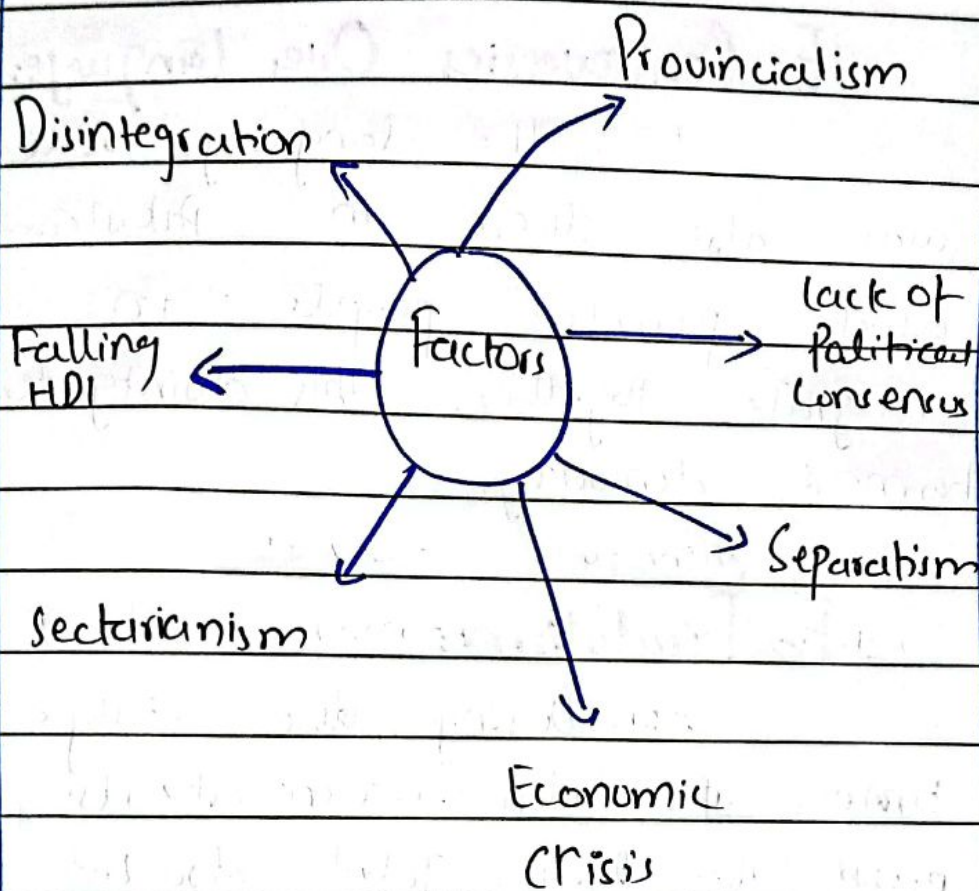 Provincialism
Disintegration
Factors
lack of
Political
Consensus
Falling
HDI
Separatism
sectarianism
Economic
crisis